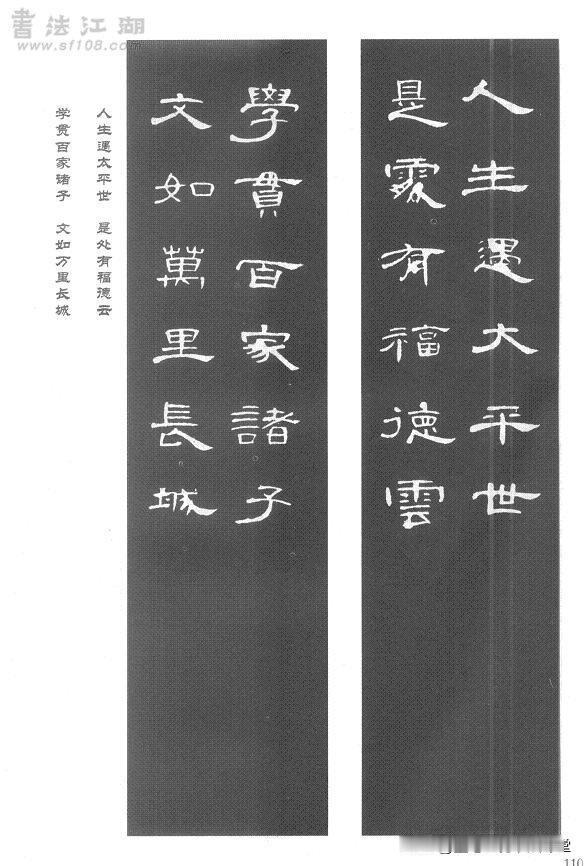 書法江湖
www.sf108.com
人生遇大平世
是處有福德雲
學貫百家諸子
文如萬里長城
人生遇太平世 是处有福德云
学贯百家诸子 文如万里长城
110